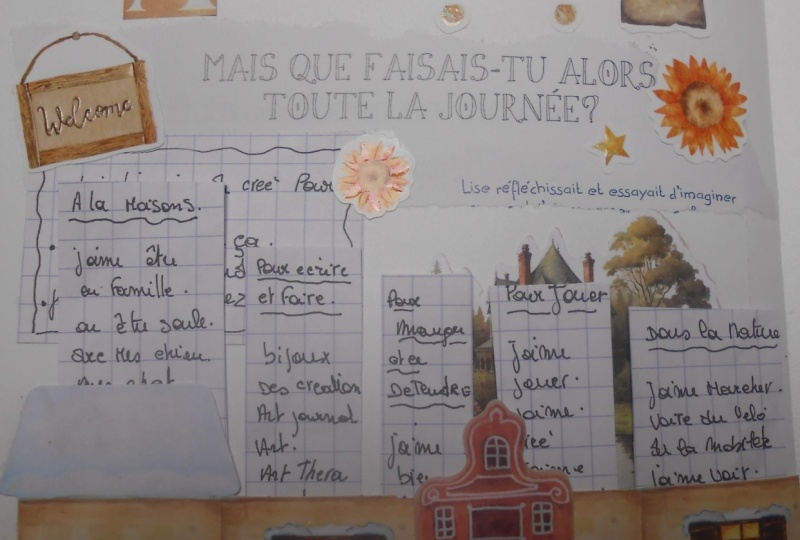 Welcome
MAIS QUE FAISAIS-TU ALORS
TOUTE LA JOURNÉE?
Lise réfléchissait et essayait d'imaginer
creé Pour
ça.
ez
A la Maisons.
j'aime être
en Famille.
ou être seule.
avec Mes chien.
Mes chat
Pour ecrire
et Faire.
bijoux
Des creation
Art journal
Art.
Art Thera
Pour
Manger
et ce
DeTendre
j'aime
bie
Pour Jouer
J'aime
jouer.
j'aime.
Dans la Nature
j'aime Marcher.
Faire du Velo
j'aime Voir.